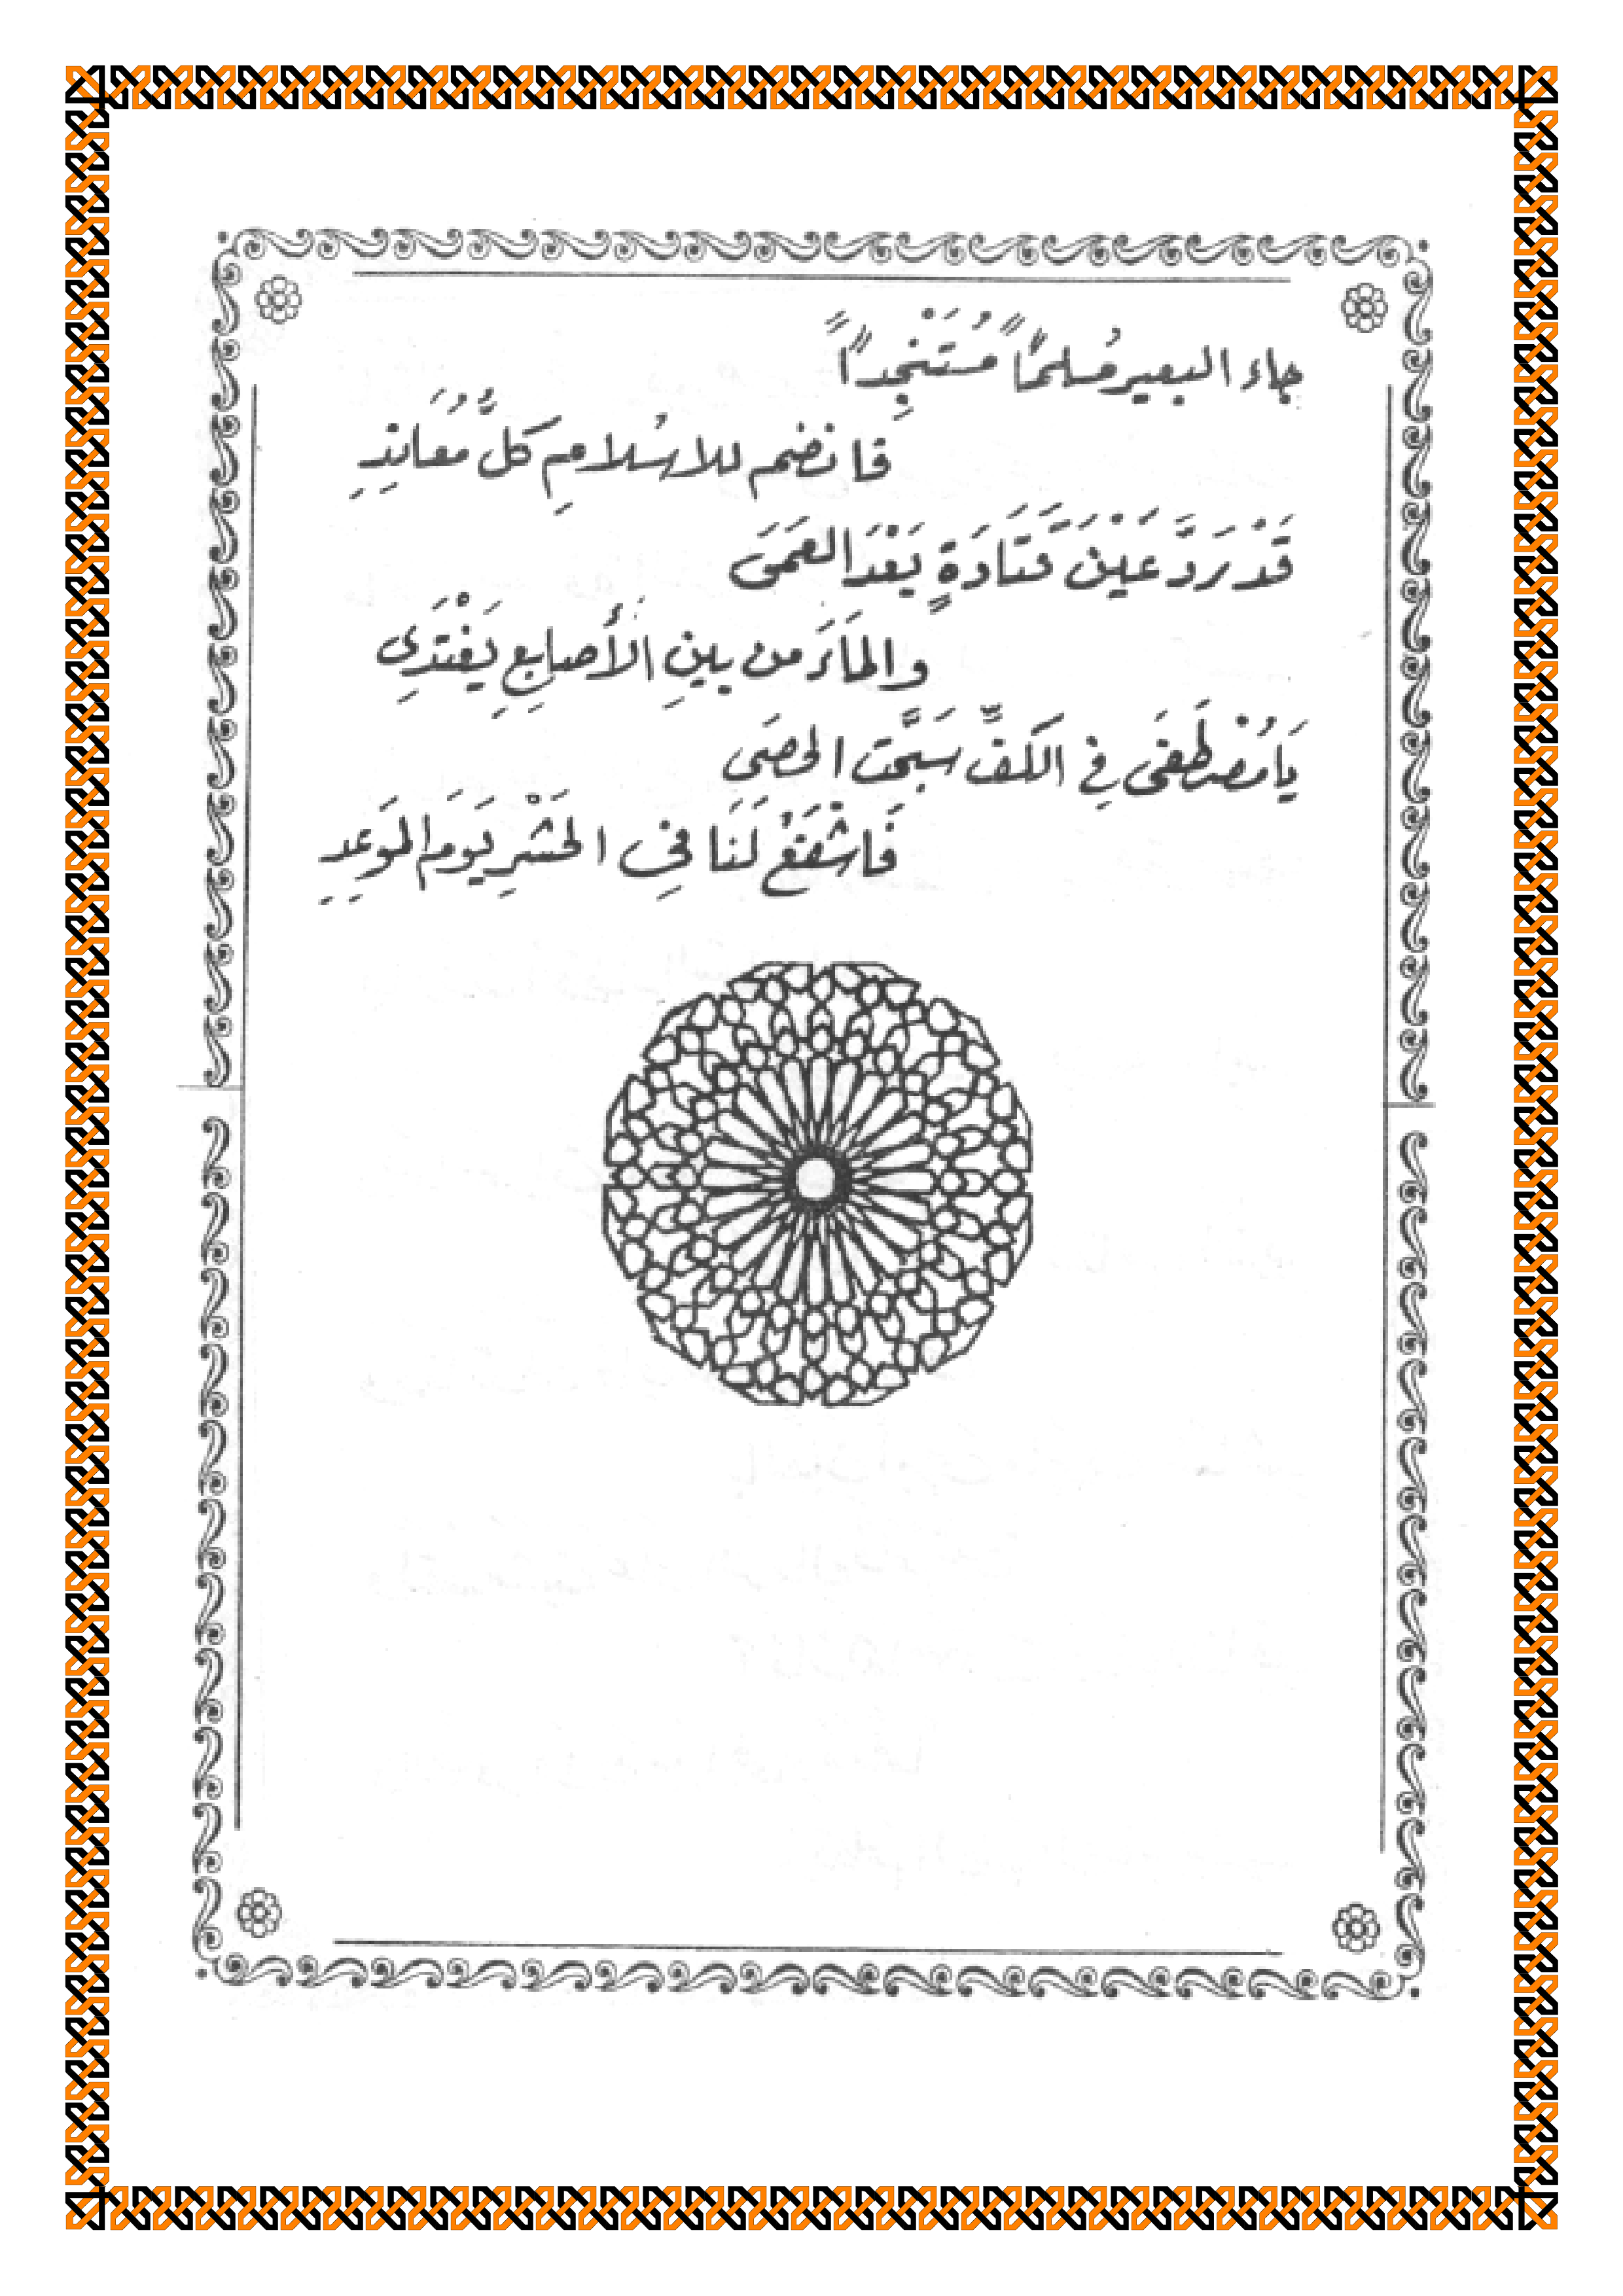 جاء البعير مُسلماً مُسْتَنْجِداً
فانضم للاسُلامِ كلُّ مُعَانِدِ
قَدْ رَدَّ عَيْنَ قَتَادَةٍ بَعْدَ العَمَى
والمَاءَ من بينِ الأصابِعِ يَغْتَدِى
يَا مُصْطَفَى فِى الكفِّ سَبَّحَت الحصَى
فَاشْفَعْ لَنَا فِى الحَشْرِ يَومَ المَوعِدِ